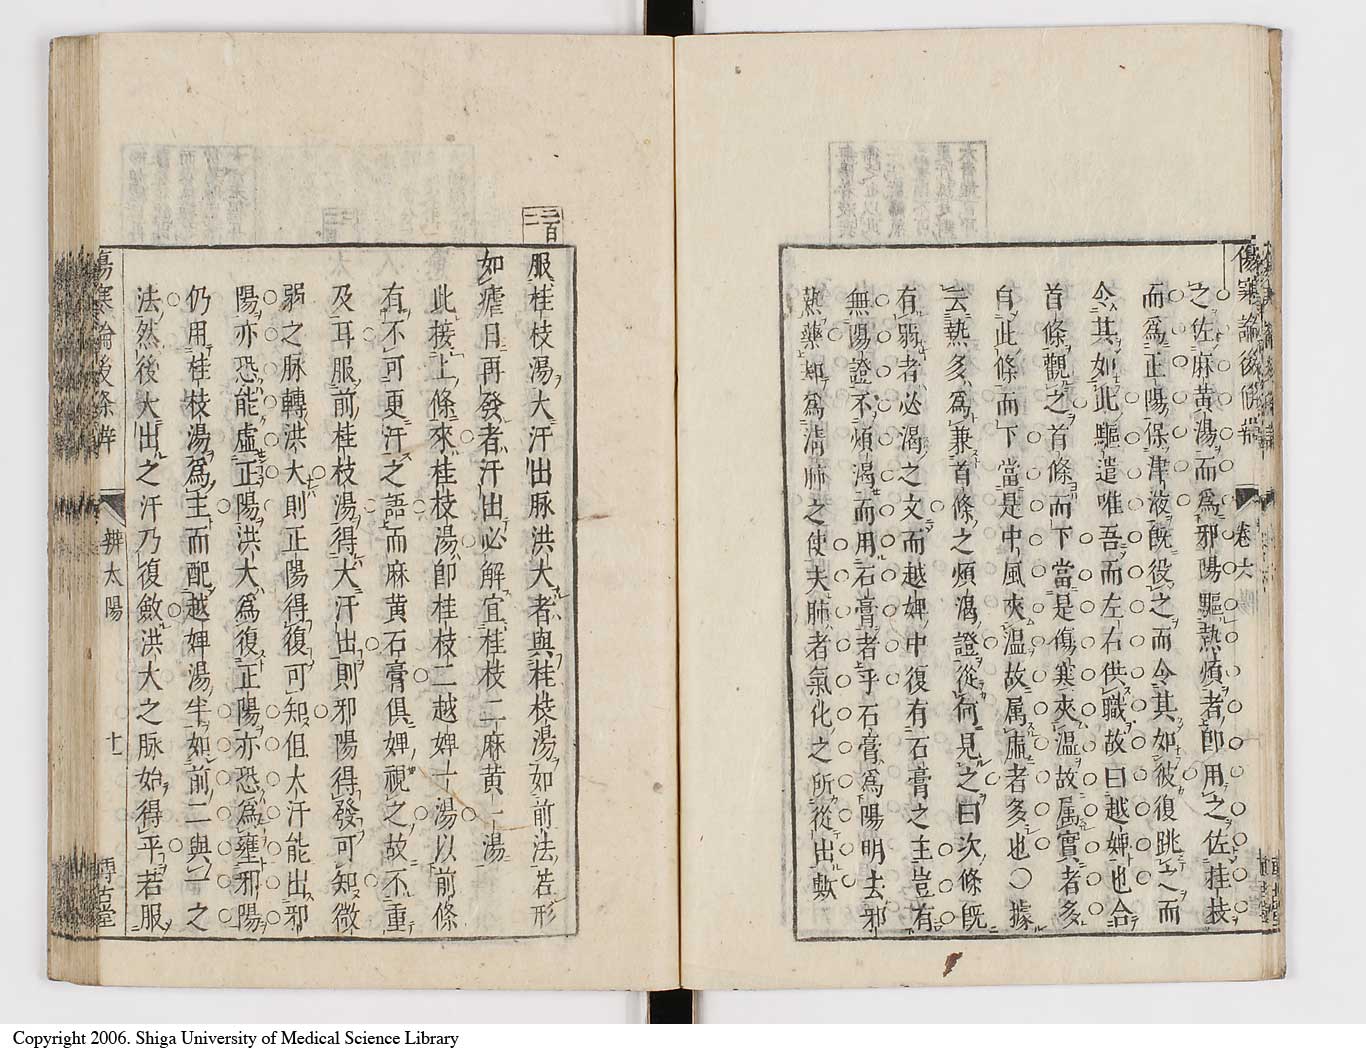 傷寒論後條辨 卷六
之佐麻黃湯而爲邪陽驅熱煩者卽用之佐桂枝
而爲正陽保津液旣役之而令其如彼復跳之而
令其如此驅遣唯吾而左右供職故曰越婢也合
首條觀之首條而下當是傷寒夾溫故属實者多
自此條而下當是中風夾溫故属虛者多也○據
去熱多爲兼首條之煩渴證從何見之曰次條旣
有弱者必渴之文而越婢中復有石膏之主豈有
無陽證不煩渴而用石膏者乎石膏爲陽明去邪
熱藥却爲清肺之使夫肺者氣化之所從出歟
二百二
服桂枝湯大汗出脉洪大者與桂枝湯如前法若形
如瘧日再發者汗出必解宜桂枝二麻黃一湯
此接上條來桂枝湯卽桂枝二越婢十湯以前條
有不可更汗之語而麻黃石膏俱婢視之故不重
及耳服前桂枝湯得大汗出則邪陽得發可知微
弱之脉轉洪大則正陽得復可知但大汗能出邪
陽亦恐能虛正陽洪大爲復正陽亦恐爲壅邪陽
仍用桂枝湯爲主而配越婢湯半如前二與一之
法然後大出之汗乃復斂洪大之脉始得平若服
傷寒論後條辨 辨太陽 十一 博古堂
Copyright 2006. Shiga University of Medical Science Library